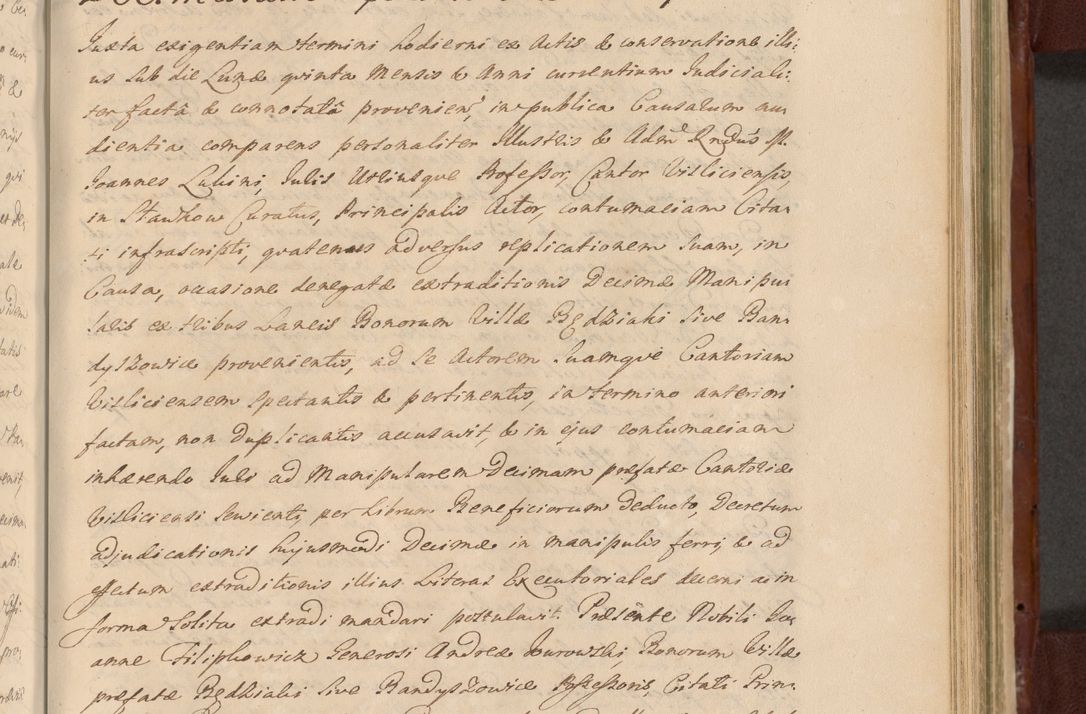 Juxta exigentiam termini hodierni ex Actis & conservatione illi:
us sub die Lunæ quinta Mensis & Anni currentium Judiciali:
ter factâ & connotatâ provenien: in publica Causarum au:
dientia comparens personaliter Illustris & Adm: Rndus M.
Joannes Lubini, Juris Utriusque Professor, Cantor Visliciensis,
in Stawkow Curatus, Principalis Actor, contumaciam Cita:
ti infrascripti, quatenus adversus replicationem suam, in
Causa, occasione denegatæ extraditionis Decimæ Manipu
laris ex tribus Laneis Bonorum Villæ Będziaki sive Ban:
dyszowice provenientis, ad se Actorem suamque Cantoriam
Visliciensem spectantis & pertinentis, in termino anteriori
factam, non duplicantis accusavit, & in ejus contumaciam
inhærendo Juri ad Manipularem Decimam præfatæ Cantoriæ
Visliciensi servienti, per Librum Beneficiorum deducto, Decretum
adjudicationis hujusmodi Decimæ in manipulis ferri, & ad
effectum extraditionis illius Literas Executoriales decerni ac in
forma solita extradi mandari postulavit. Præsente Nobili Jo:
anne Filipkowicz Generosi Andreæ Burowski, Bonorum Villæ
præfatæ Będziaki sive Bandyszowice Possessoris, Citati Prin: